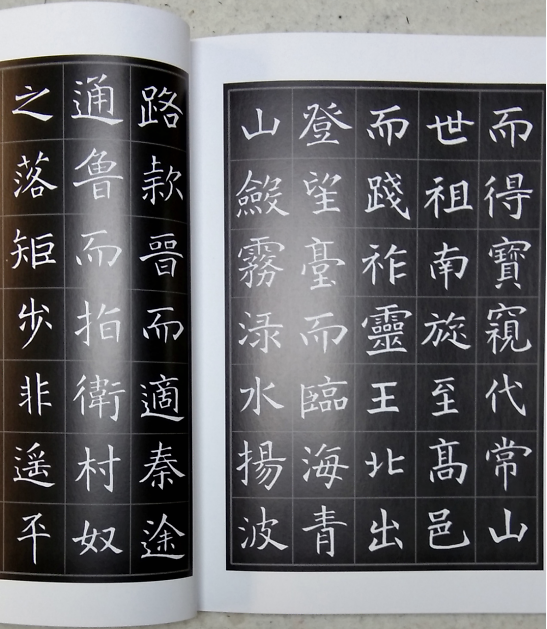 而得寶窺代常山
世祖南旋至髙邑
而踐祚靈王北出
登望臺而臨海青
山斂霧淥水揚波
路款晉而適秦途
通魯而指衛村奴
之落矩步非遥平